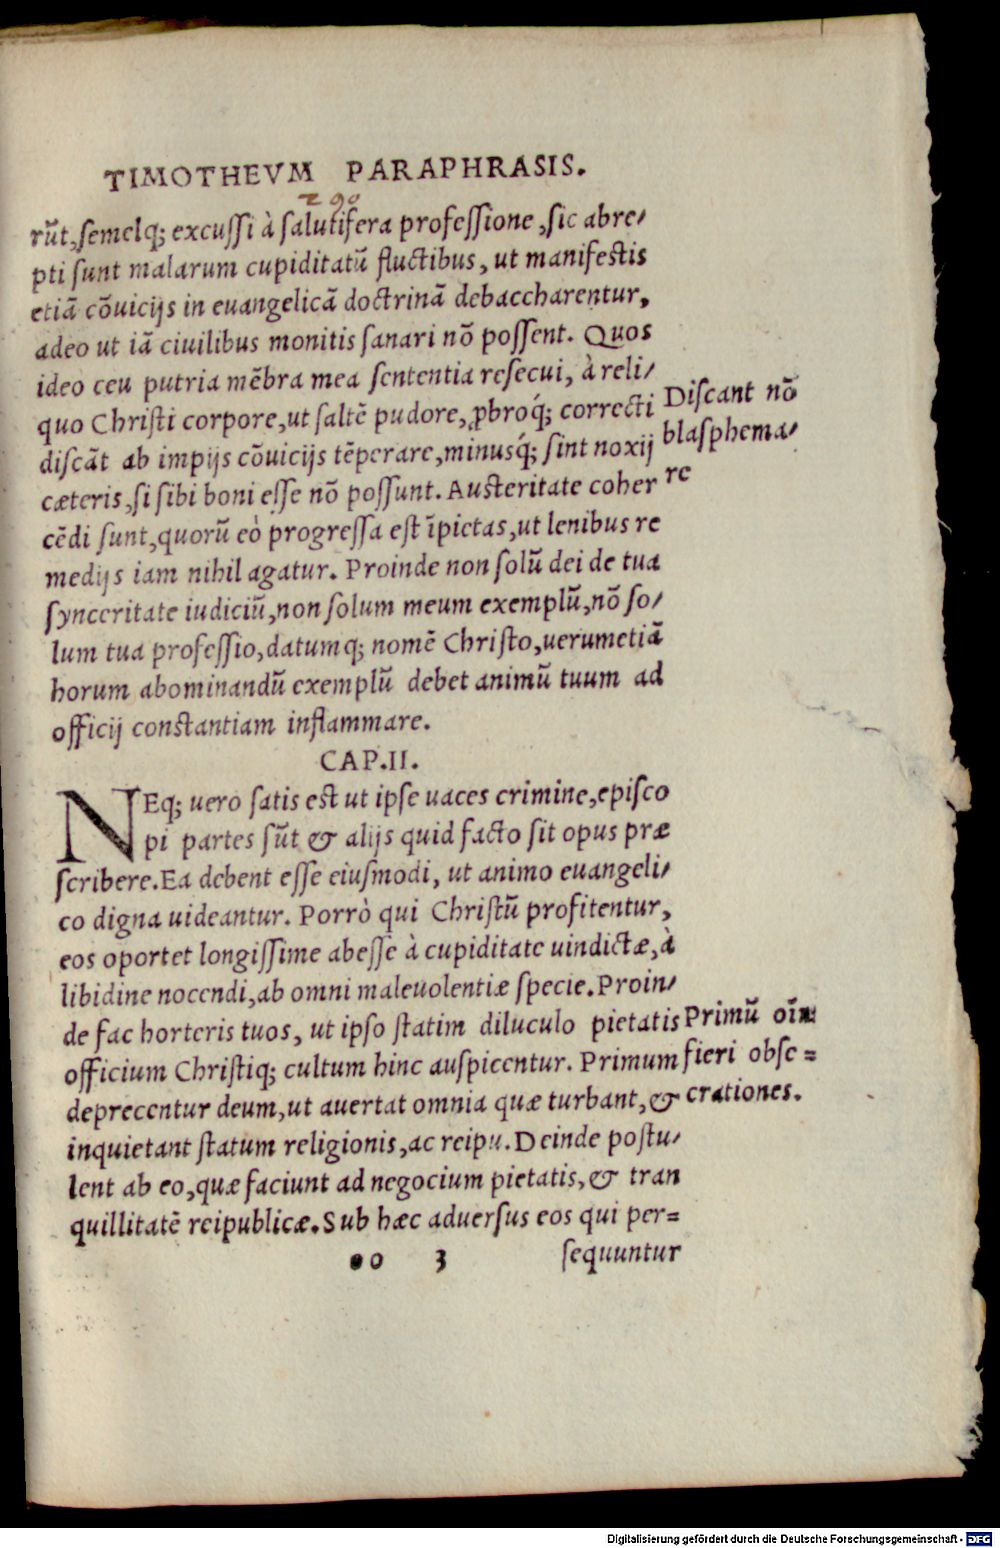 TIMOTHEVM PARAPHRASIS.
290
rũt, semelq; excussi à salutifera professione, sic abre/
pti sunt malarum cupiditatũ fluctibus, ut manifestis
etiã cõuicijs in euangelicã doctrinã debaccharentur,
adeo ut iã ciuilibus monitis sanari nõ possent. Quos
ideo ceu putria mẽbra mea sententia resecui, à reli/
quo Christi corpore, ut saltẽ pudore, ꝓbroq́; correcti
discãt ab impijs cõuicijs tẽperare, minusq́; sint noxij
cæteris, si sibi boni esse nõ possunt. Austeritate coher
cẽdi sunt, quorũ eò progressa est ĩpietas, ut lenibus re
medijs iam nihil agatur. Proinde non solũ dei de tua
synceritate iudiciũ, non solum meum exemplũ, nõ so/
lum tua professio, datumq; nomẽ Christo, uerumetiã
horum abominandũ exemplũ debet animũ tuum ad
officij constantiam inflammare.
Discant nõ
blasphema/
re
CAP. II.
NEq; uero satis est ut ipse uaces crimine, episco
pi partes sũt & alijs quid facto sit opus præ
scribere. Ea debent esse eiusmodi, ut animo euangeli/
co digna uideantur. Porrò qui Christũ profitentur,
eos oportet longissime abesse à cupiditate uindictæ, à
libidine nocendi, ab omni maleuolentiæ specie. Proin/
de fac horteris tuos, ut ipso statim diluculo pietatis
officium Christiq; cultum hinc auspicentur. Primum
deprecentur deum, ut auertat omnia quæ turbant, &
inquietant statum religionis, ac reipu. Deinde postu/
lent ab eo, quæ faciunt ad negocium pietatis, & tran
quillitatẽ reipublicæ. Sub hæc aduersus eos qui per=
Primũ oĩm
fieri obse=
crationes.
oo 3 sequuntur
Digitalisierung gefördert durch die Deutsche Forschungsgemeinschaft - DFG